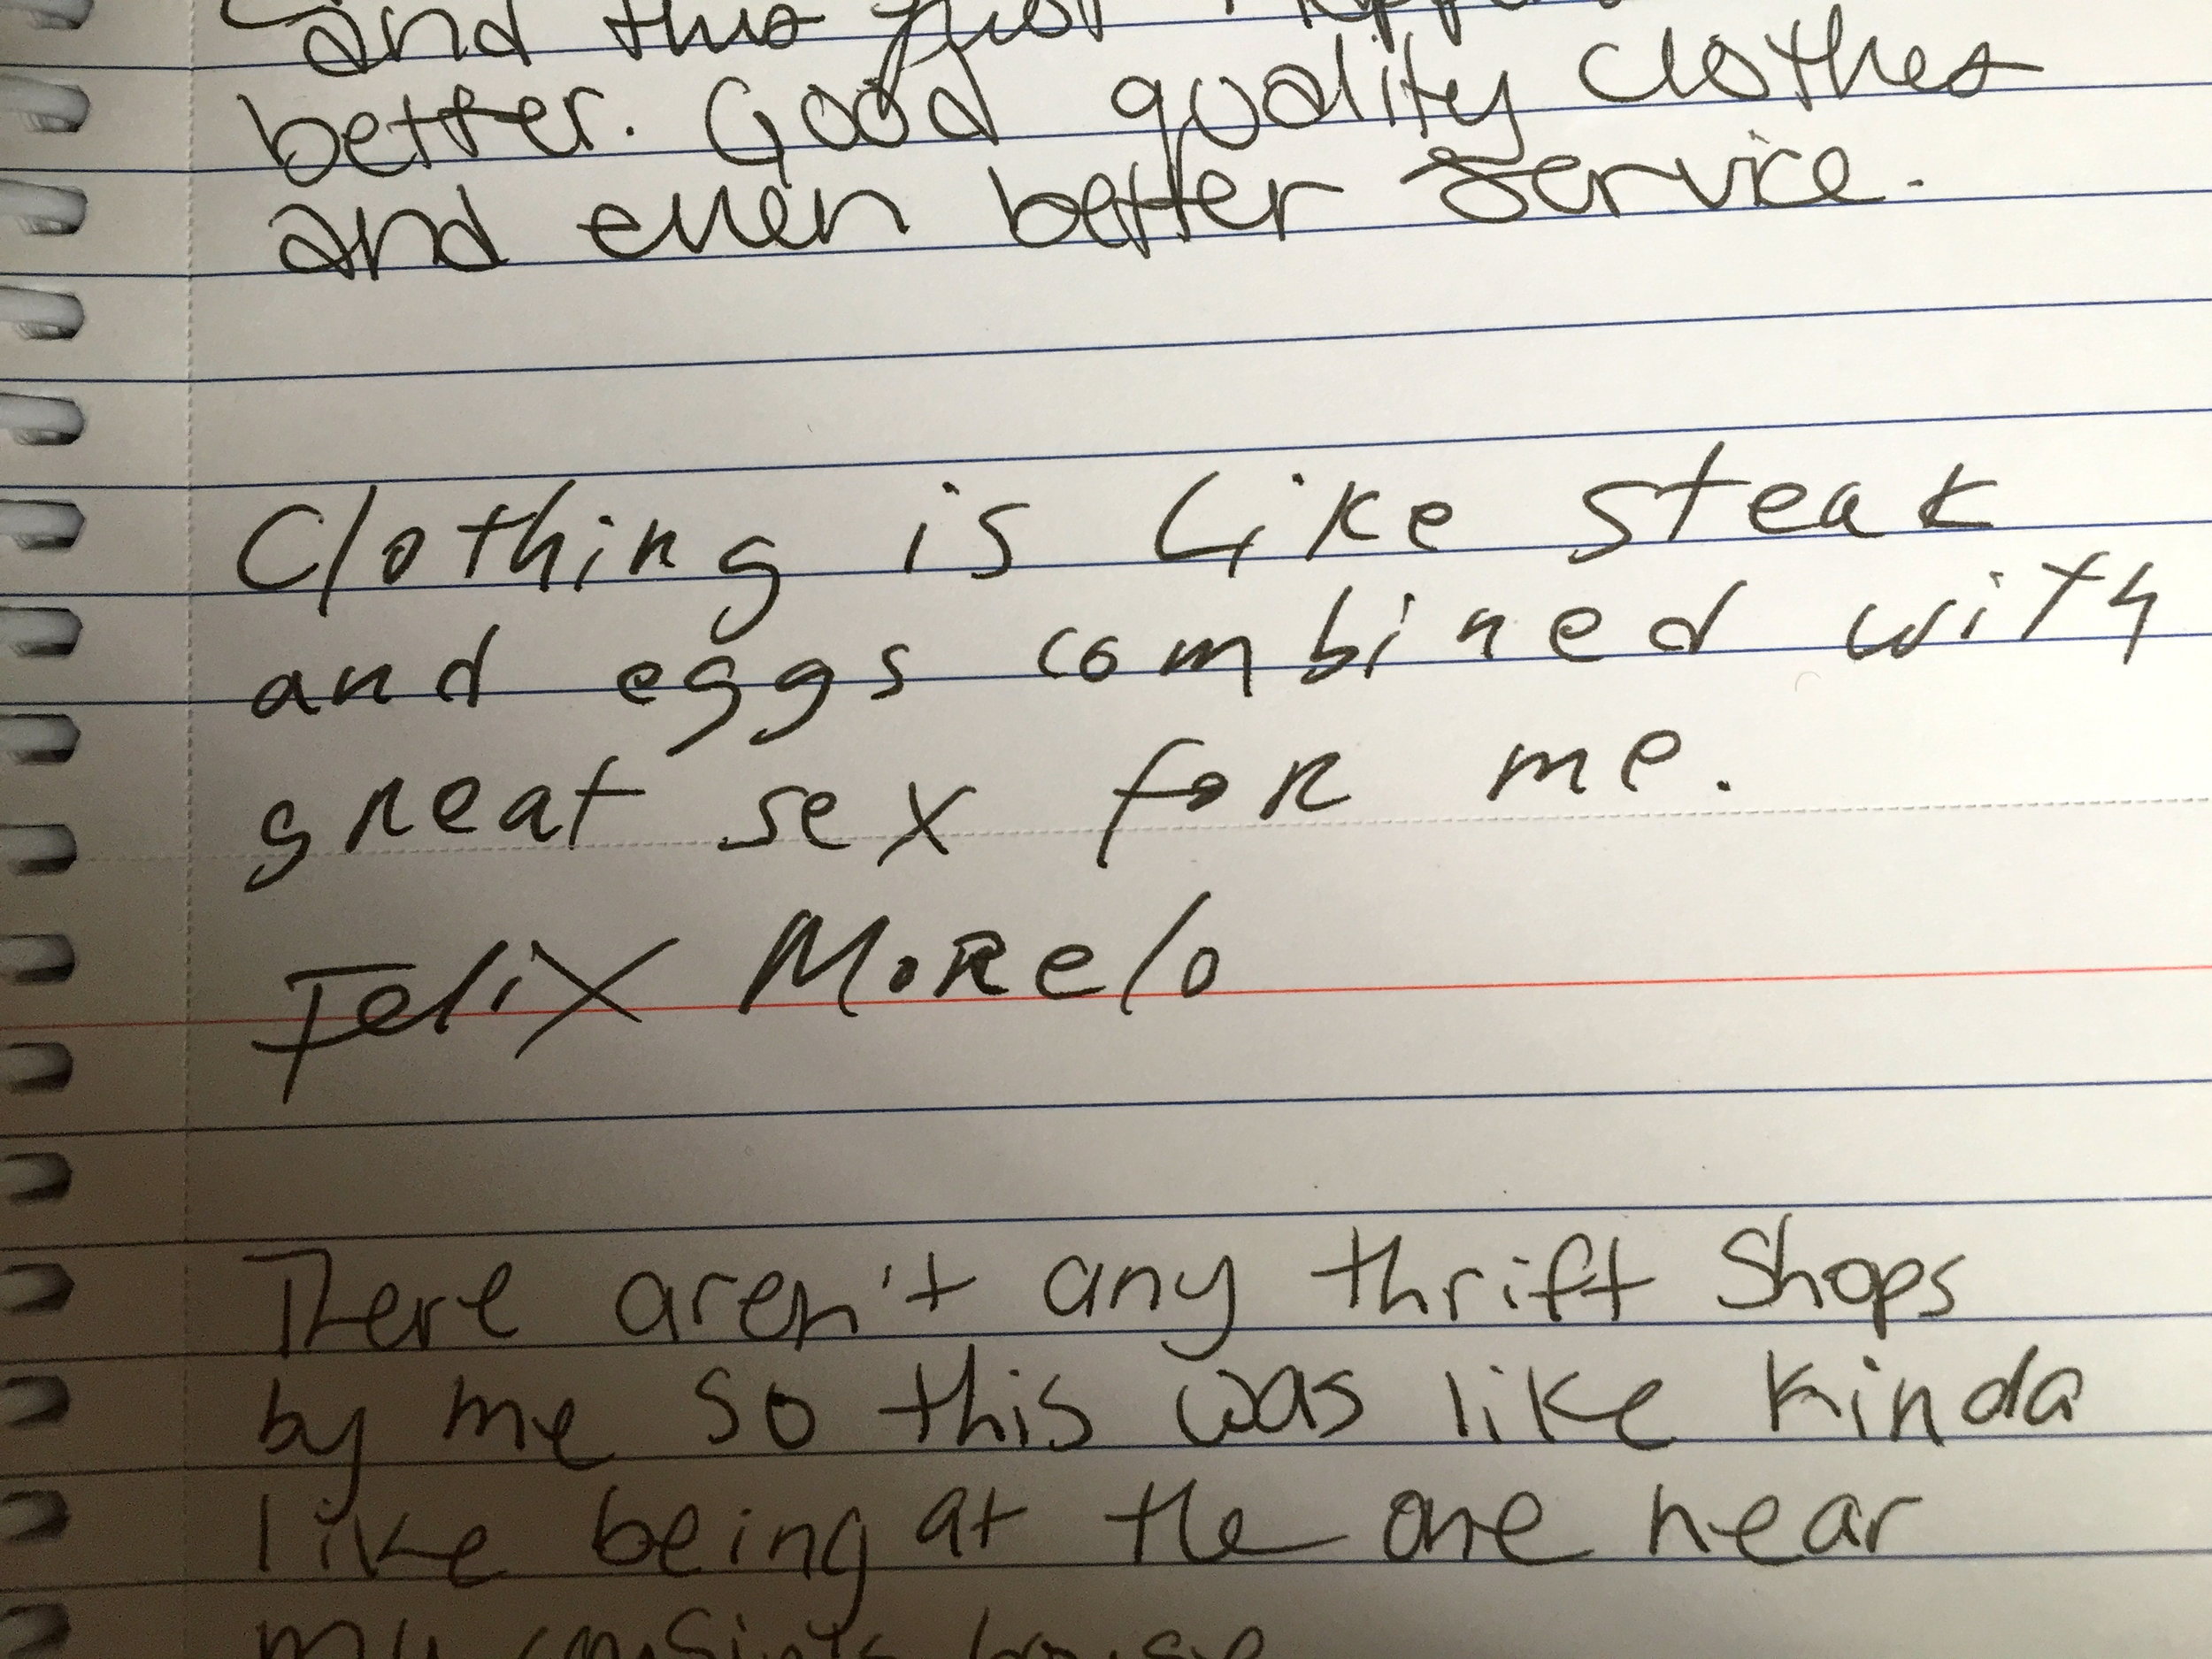 and this just
better. Good quality clothes
and even better service.
Clothing is Like steak
and eggs combined with
great sex for me.
Felix Morelo
There aren't any thrift shops
by me so this was like kinda
like being at the one near
my cousin's house